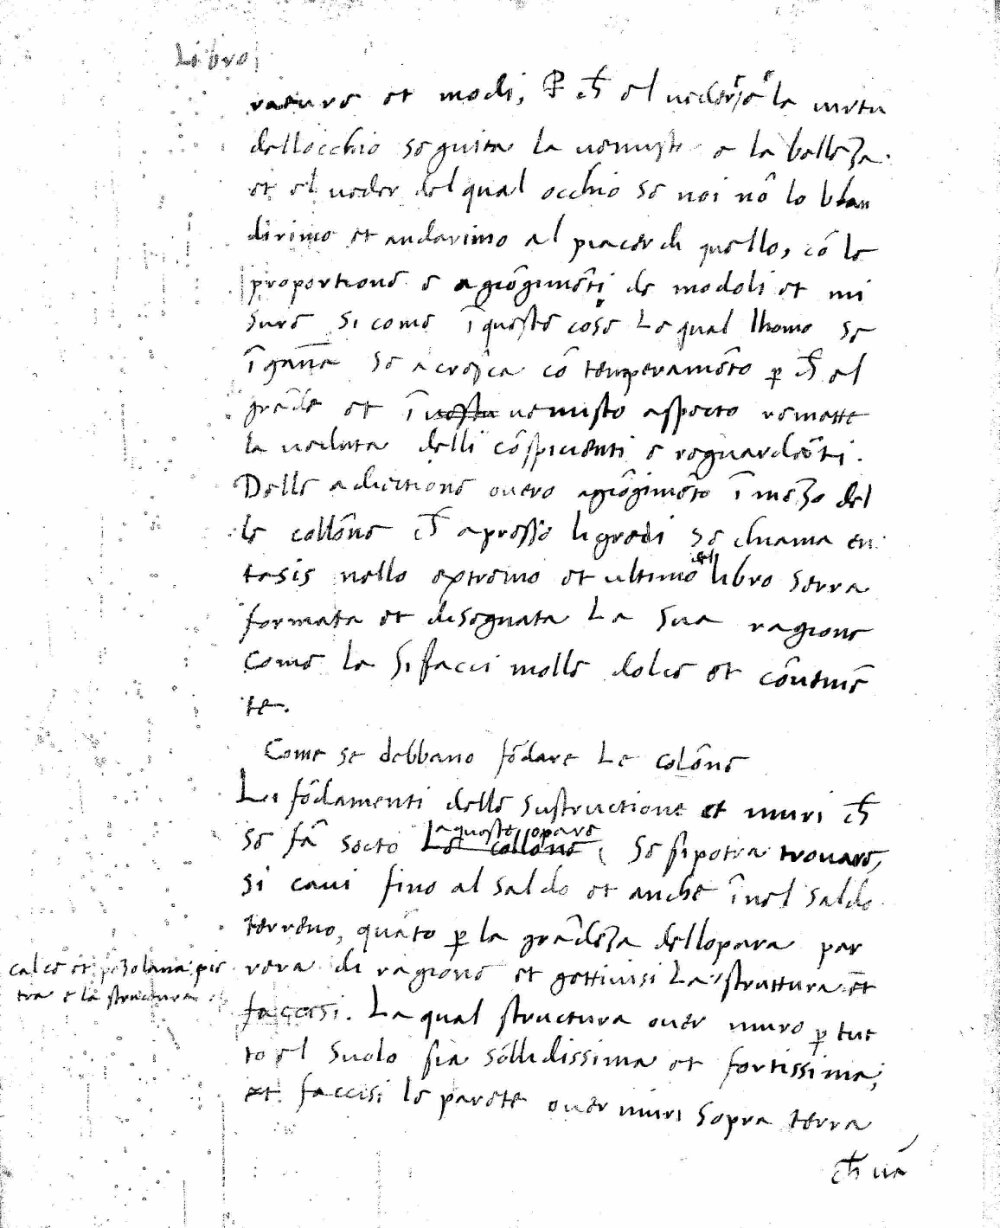 Libro
rature et modi, P ch̄ el veder e la virtu
dellocchio seguita la venusta e la belleza.
et el veder del qual occhio se noi nō lo blan
dirimo et andarimo al piacer di quello, cō le
proportione e agiōgimēti de modoli et mi
sure si come ī queste cose Le qual lhomo se
īganna se acresca cō temperamēto p ch̄ el
grāde et ī vostu venusto aspecto remette
la veduta delli cōspicienti e reguardēti.
Delle adiectione overo agiōgimēto ī mezo del
le collōne ch̄ apresso li gredi se chiama en
tasis nello extremo et ultimo del libro serra
formata et disegnata La sua ragione
Come la si facci molle dolce et cōvenië
te.
Come se debbano fōdare Le colōne
Li fōdamenti delle sustructione et muri ch̄
se fā socto Le collōne a queste opare se si potra trovare,
si cavi fino al saldo et anche īnel saldo
terreno, quāto p la grādeza dellopara par
rera di ragione et gettivisi La struttura ēt
faccisi. La qual structura over muro p tut
to el suolo sia sollidissima et fortissima;
et faccisi le parete over muri sopra terra
ch̄ vā
calce et pozolana pie
tra e la structura